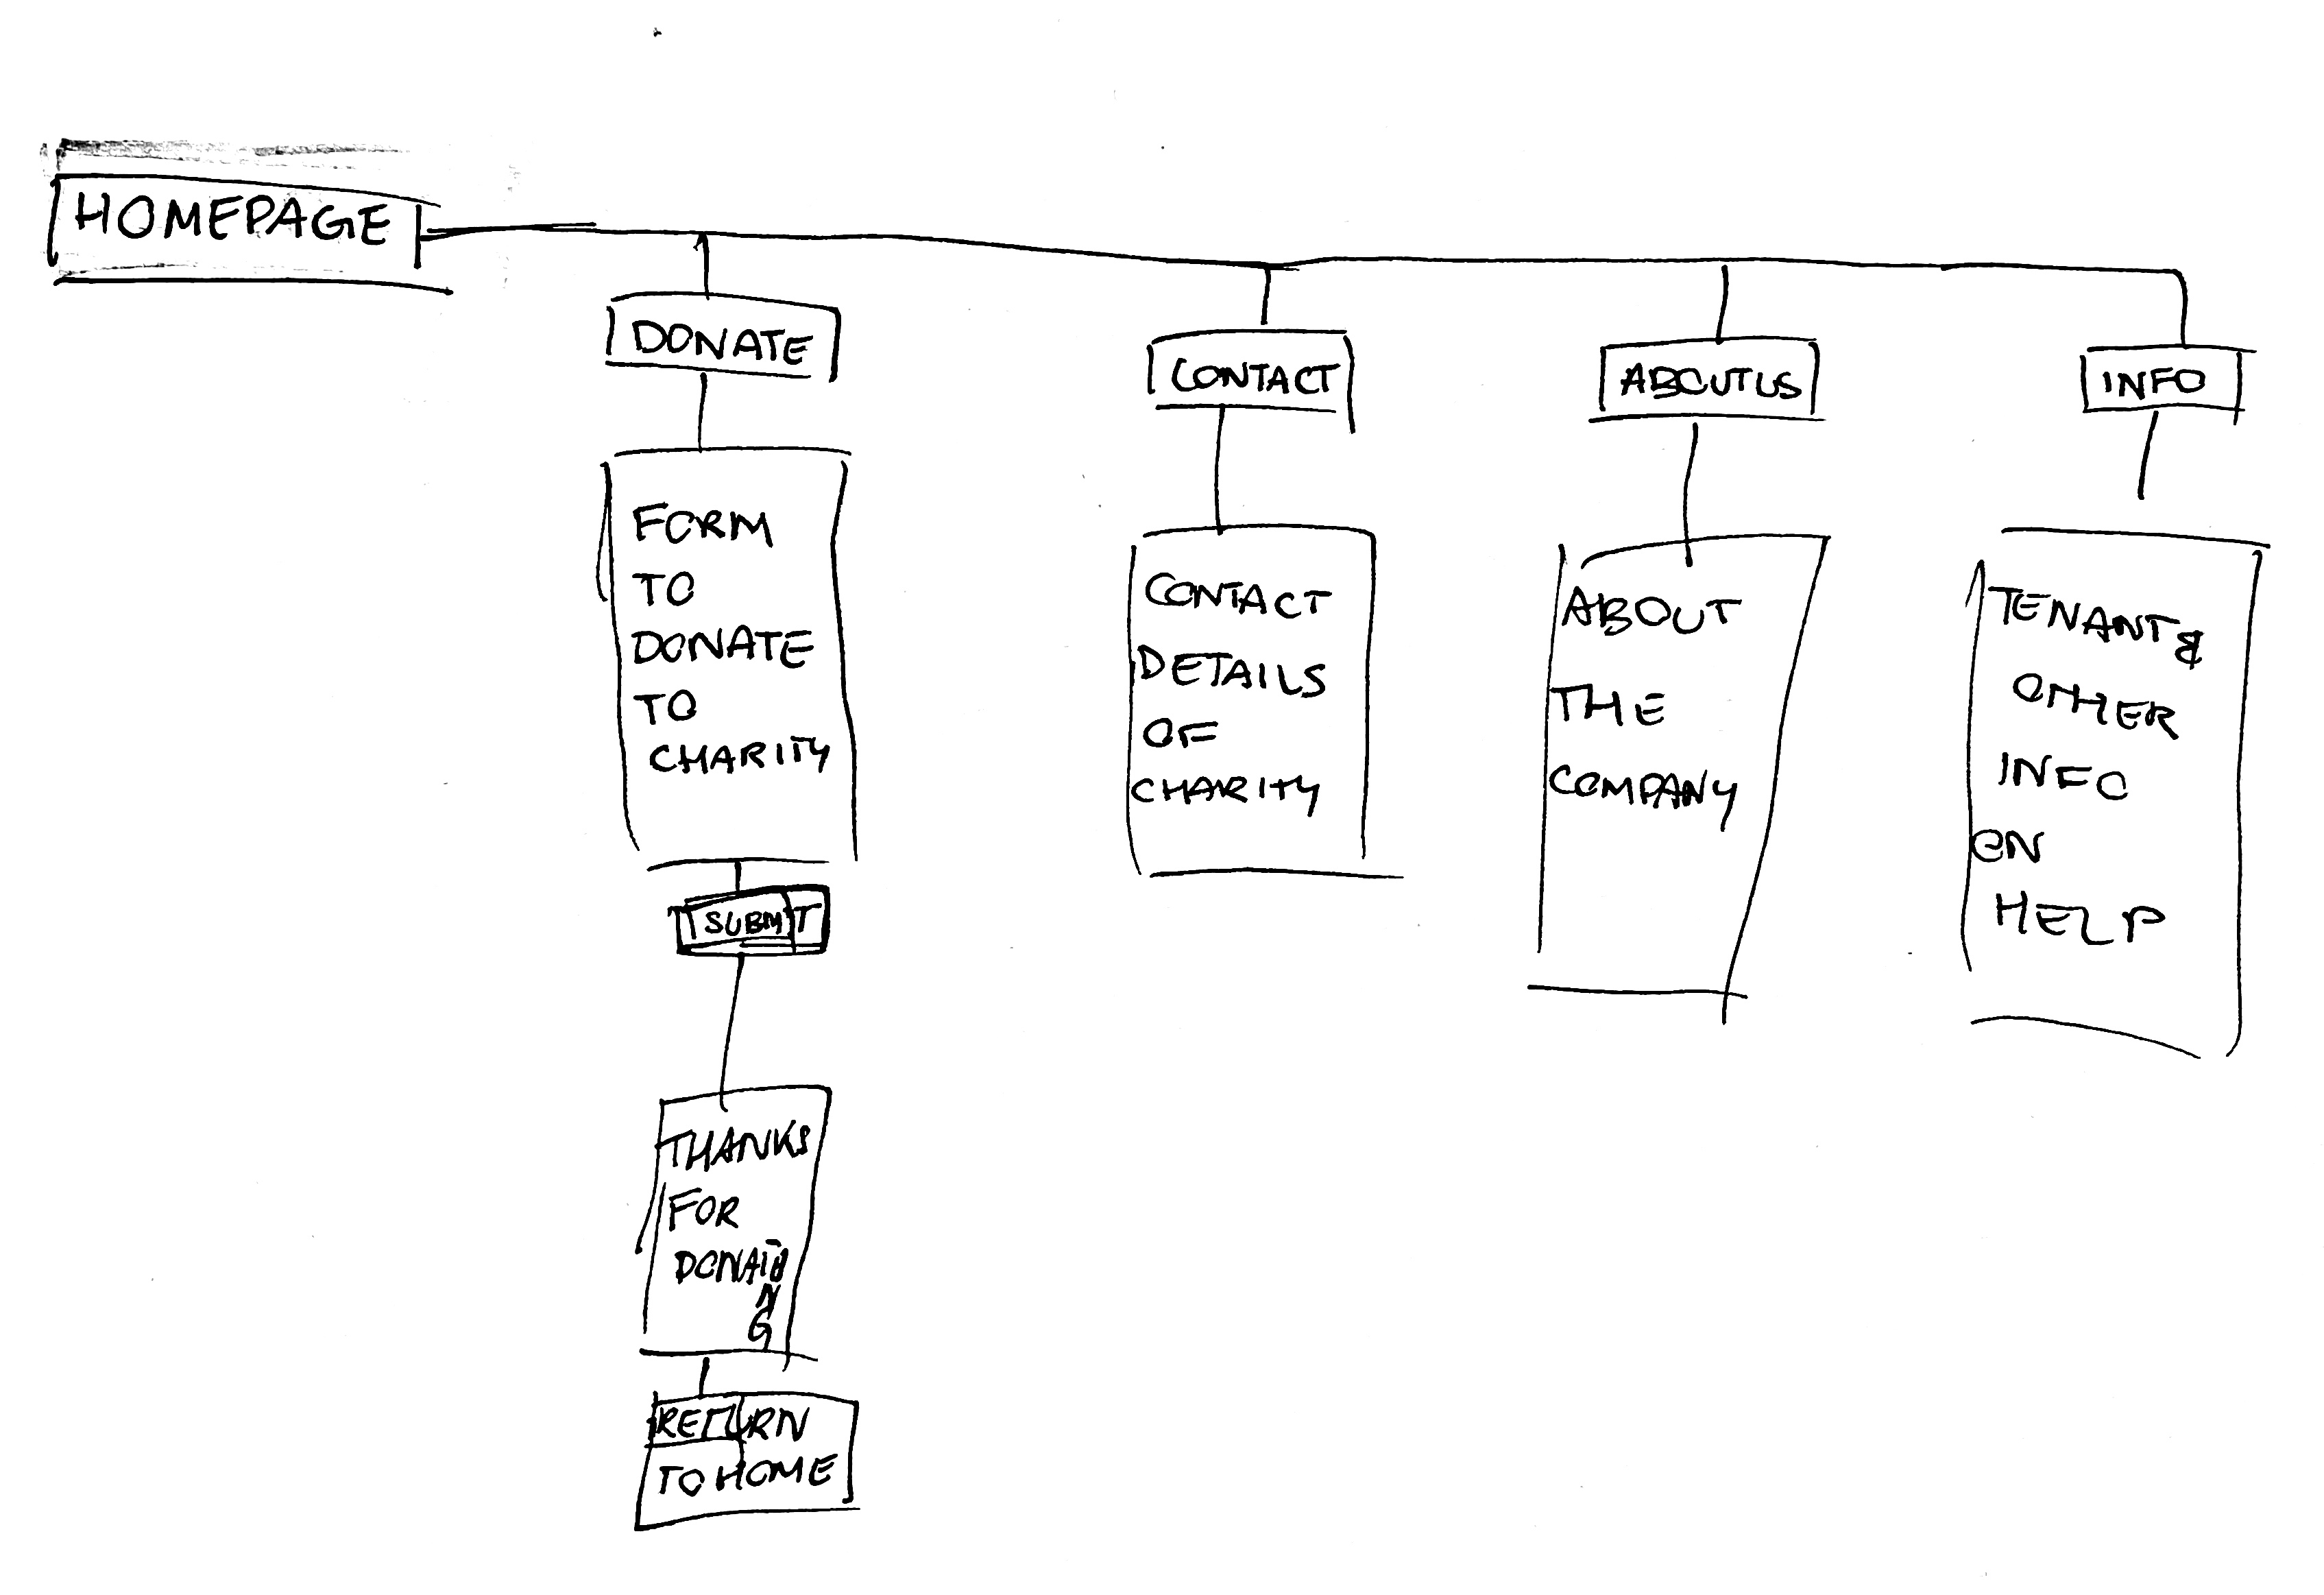 HOMEPAGE
DONATE
FORM
TO
DONATE
TO
CHARITY
SUBMIT
THANKS
FOR
DONATI
N
G
RETURN
TO HOME
CONTACT
CONTACT
DETAILS
OF
CHARITY
ABOUT US
ABOUT
THE
COMPANY
INFO
TENANT &
OTHER
INFO
ON
HELP